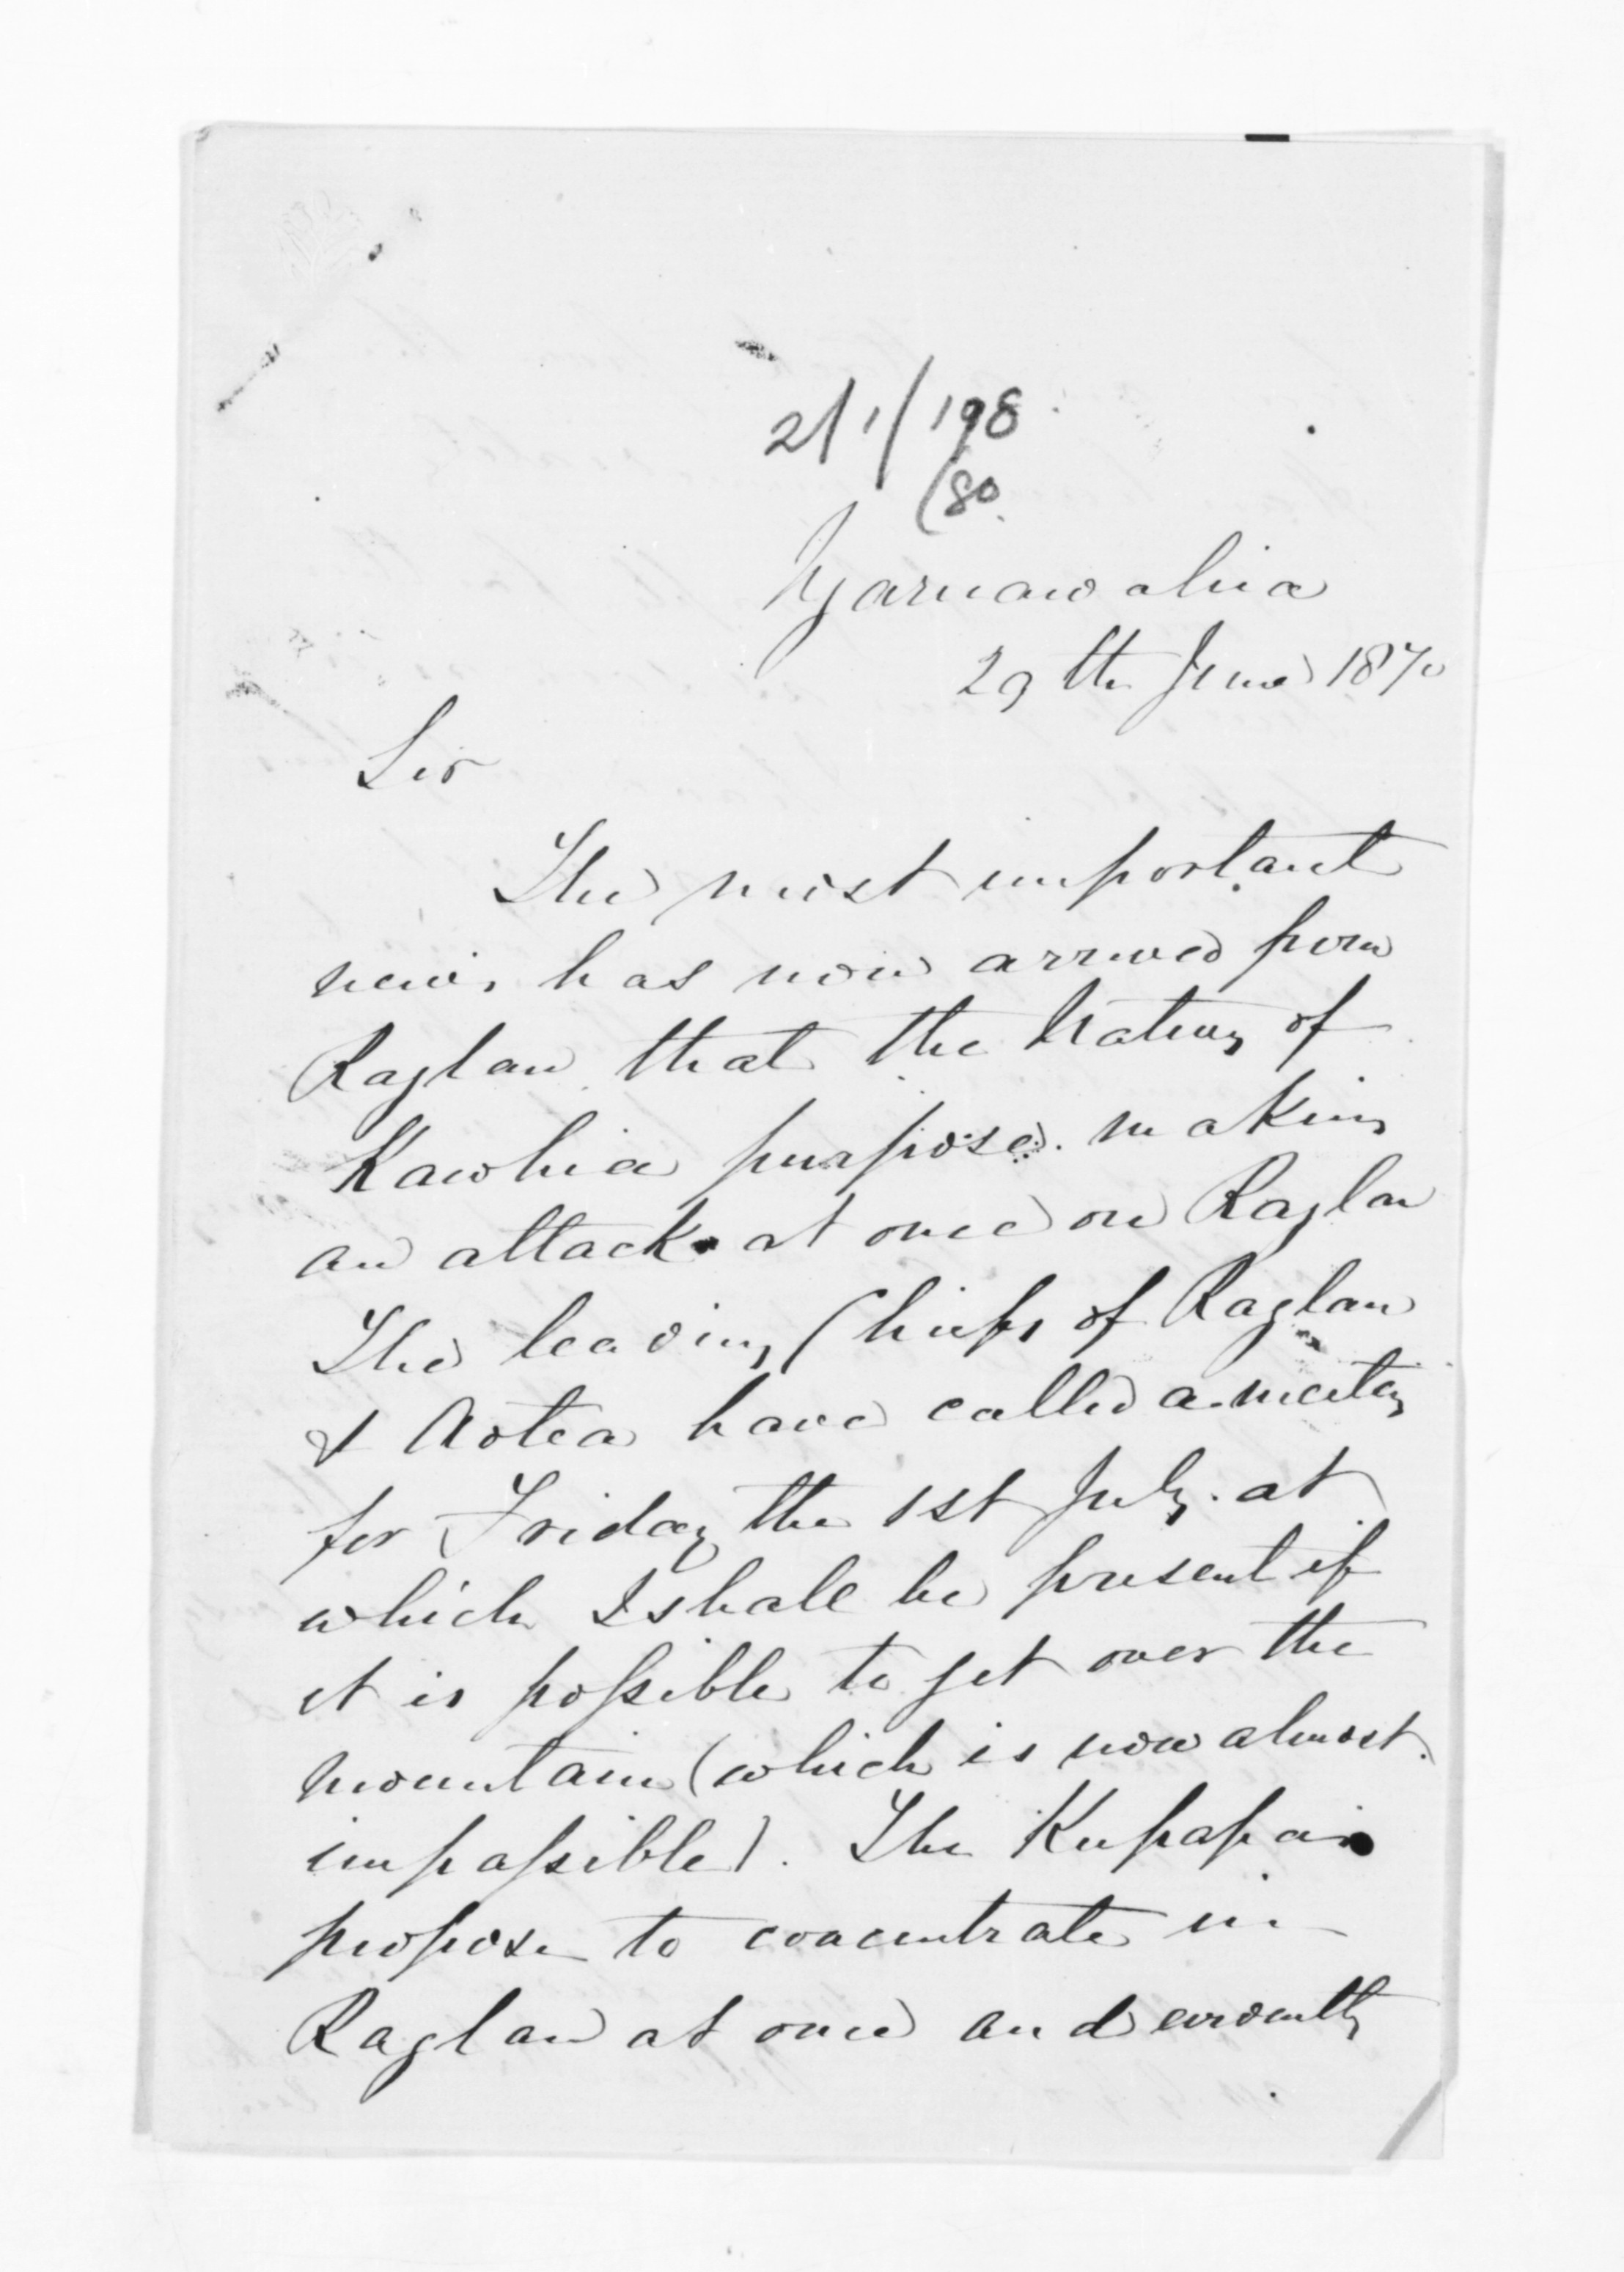 2/1/198
(80.
Ngaruawahia
29th June 1870
Sir
The most important
news has now arrived from
Raglan that the Natives of
Kawhia purpose making
an attack at once on Raglan
The leading Chiefs of Raglan
& Aotea have called a meeting
for Friday the 1st July at
which I shall be present if
it is possible to get over the
mountain (which is now almost
impassible). The Kupapas
propose to concentrate in
Raglan at once and evidently